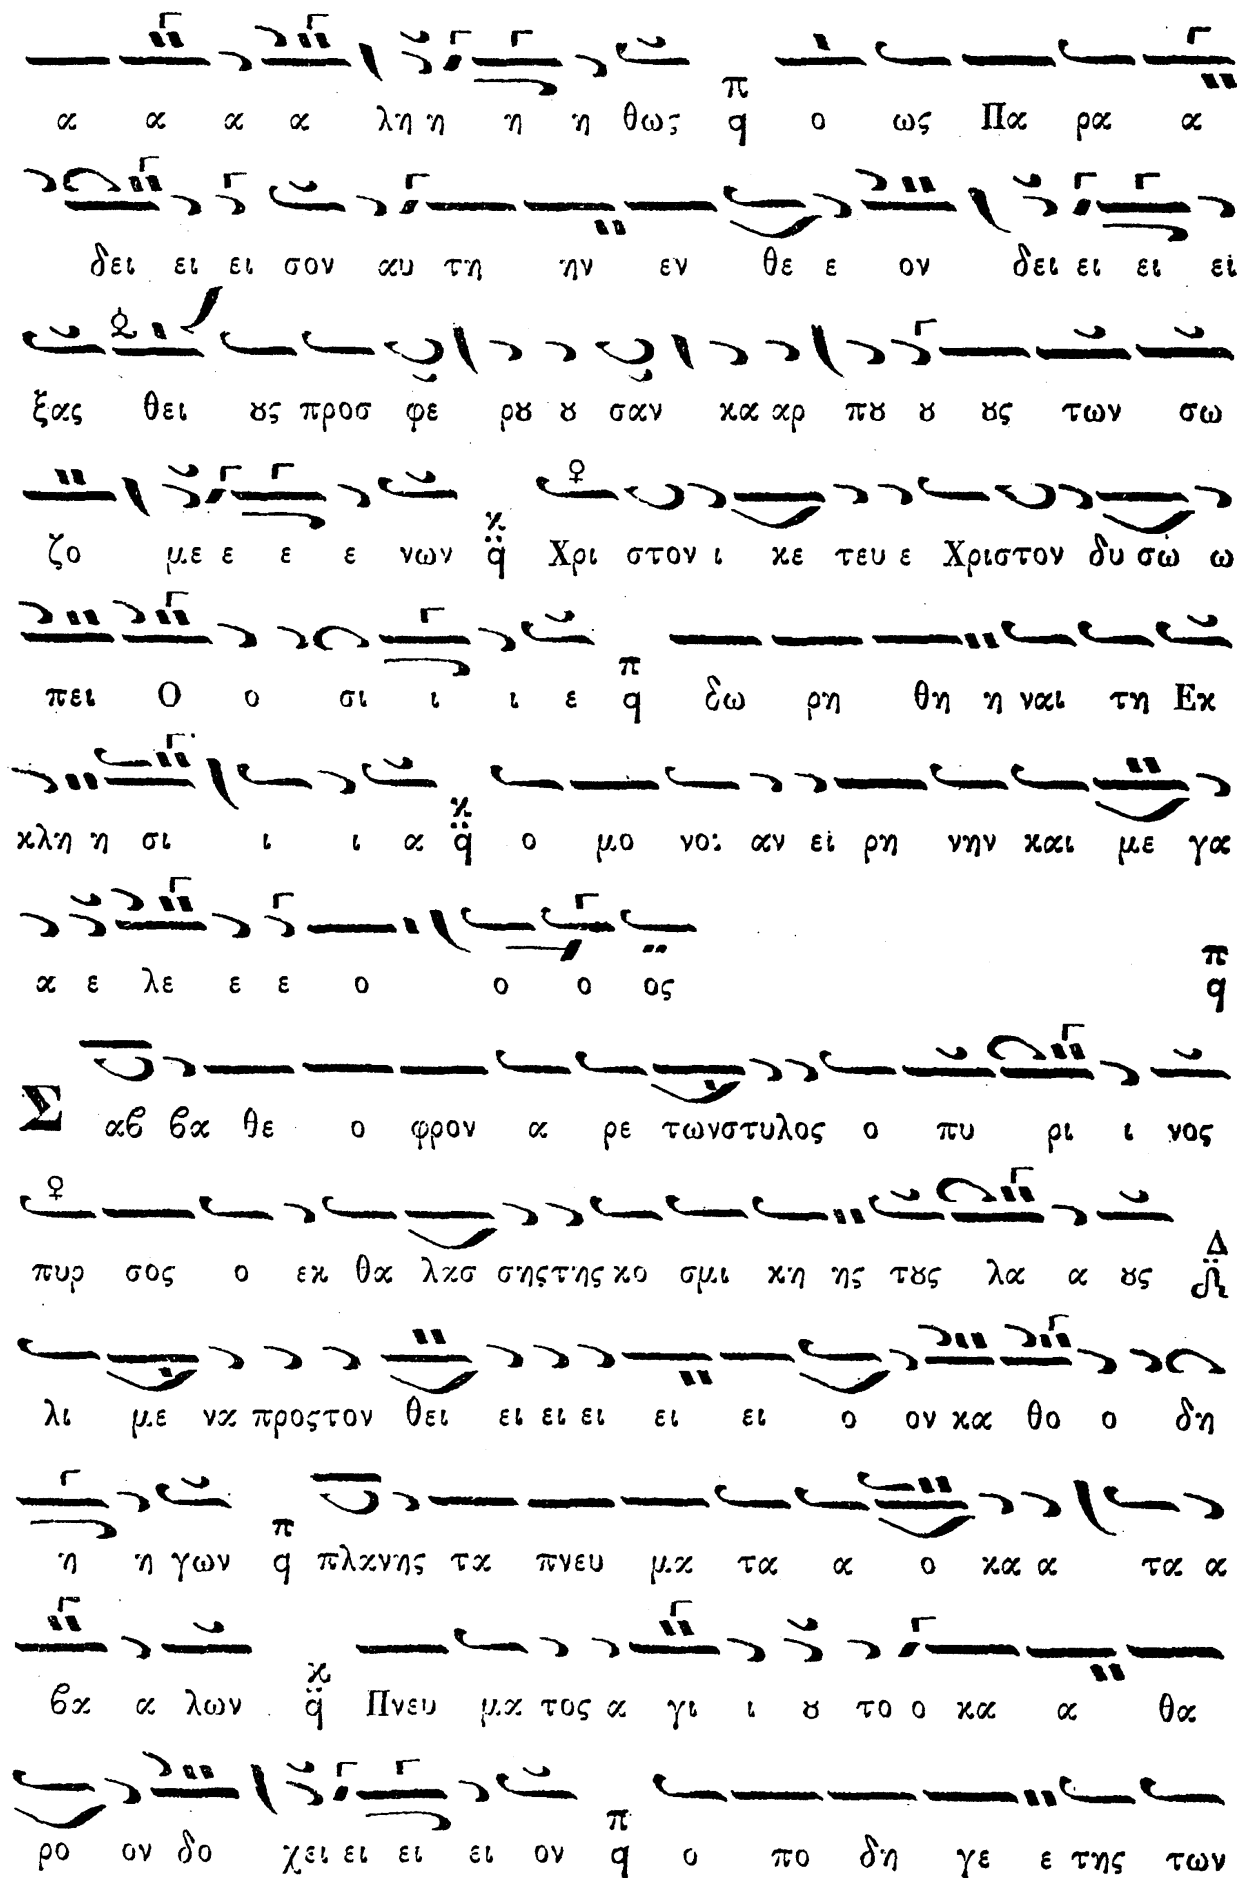 α α α α λη η η η θως π q ο ως Πα ρα α
δει ει ει σον αυ τη ην εν θε ε ον δει ει ει ει
ξας θει ȣς προσ φε ρȣ ȣ σαν κα αρ πȣ ȣ ȣς των σω
ζο με ε ε ε νων κ q̈ Χρι στον ι κε τευ ε Χριστον δυ σω ω
πει Ο ο σι ι ι ε π q δω ρη θη η ναι τη Εκ
κλη η σι ι ι α κ q̈ ο μο νοι αν ει ρη νην και με γα
α ε λε ε ε ο ο ο ος π q
Σ αϐ ϐα θε ο φρον α ρε των στυλος ο πυ ρι ι νος
πυρ σος ο εκ θα λασ σης της κο σμι κη ης τȣς λα α ȣς Δ
λι με να προς τον θει ει ει ει ει ει ο ον κα θο ο δη
η η γων π q πλανης τα πνευ μα τα α ο κα α τα α
ϐα α λων κ q̈ Πνευ μα τος α γι ι ȣ το ο κα α θα
ρο ον δο χει ει ει ει ον π q ο πο δη γε ε της των